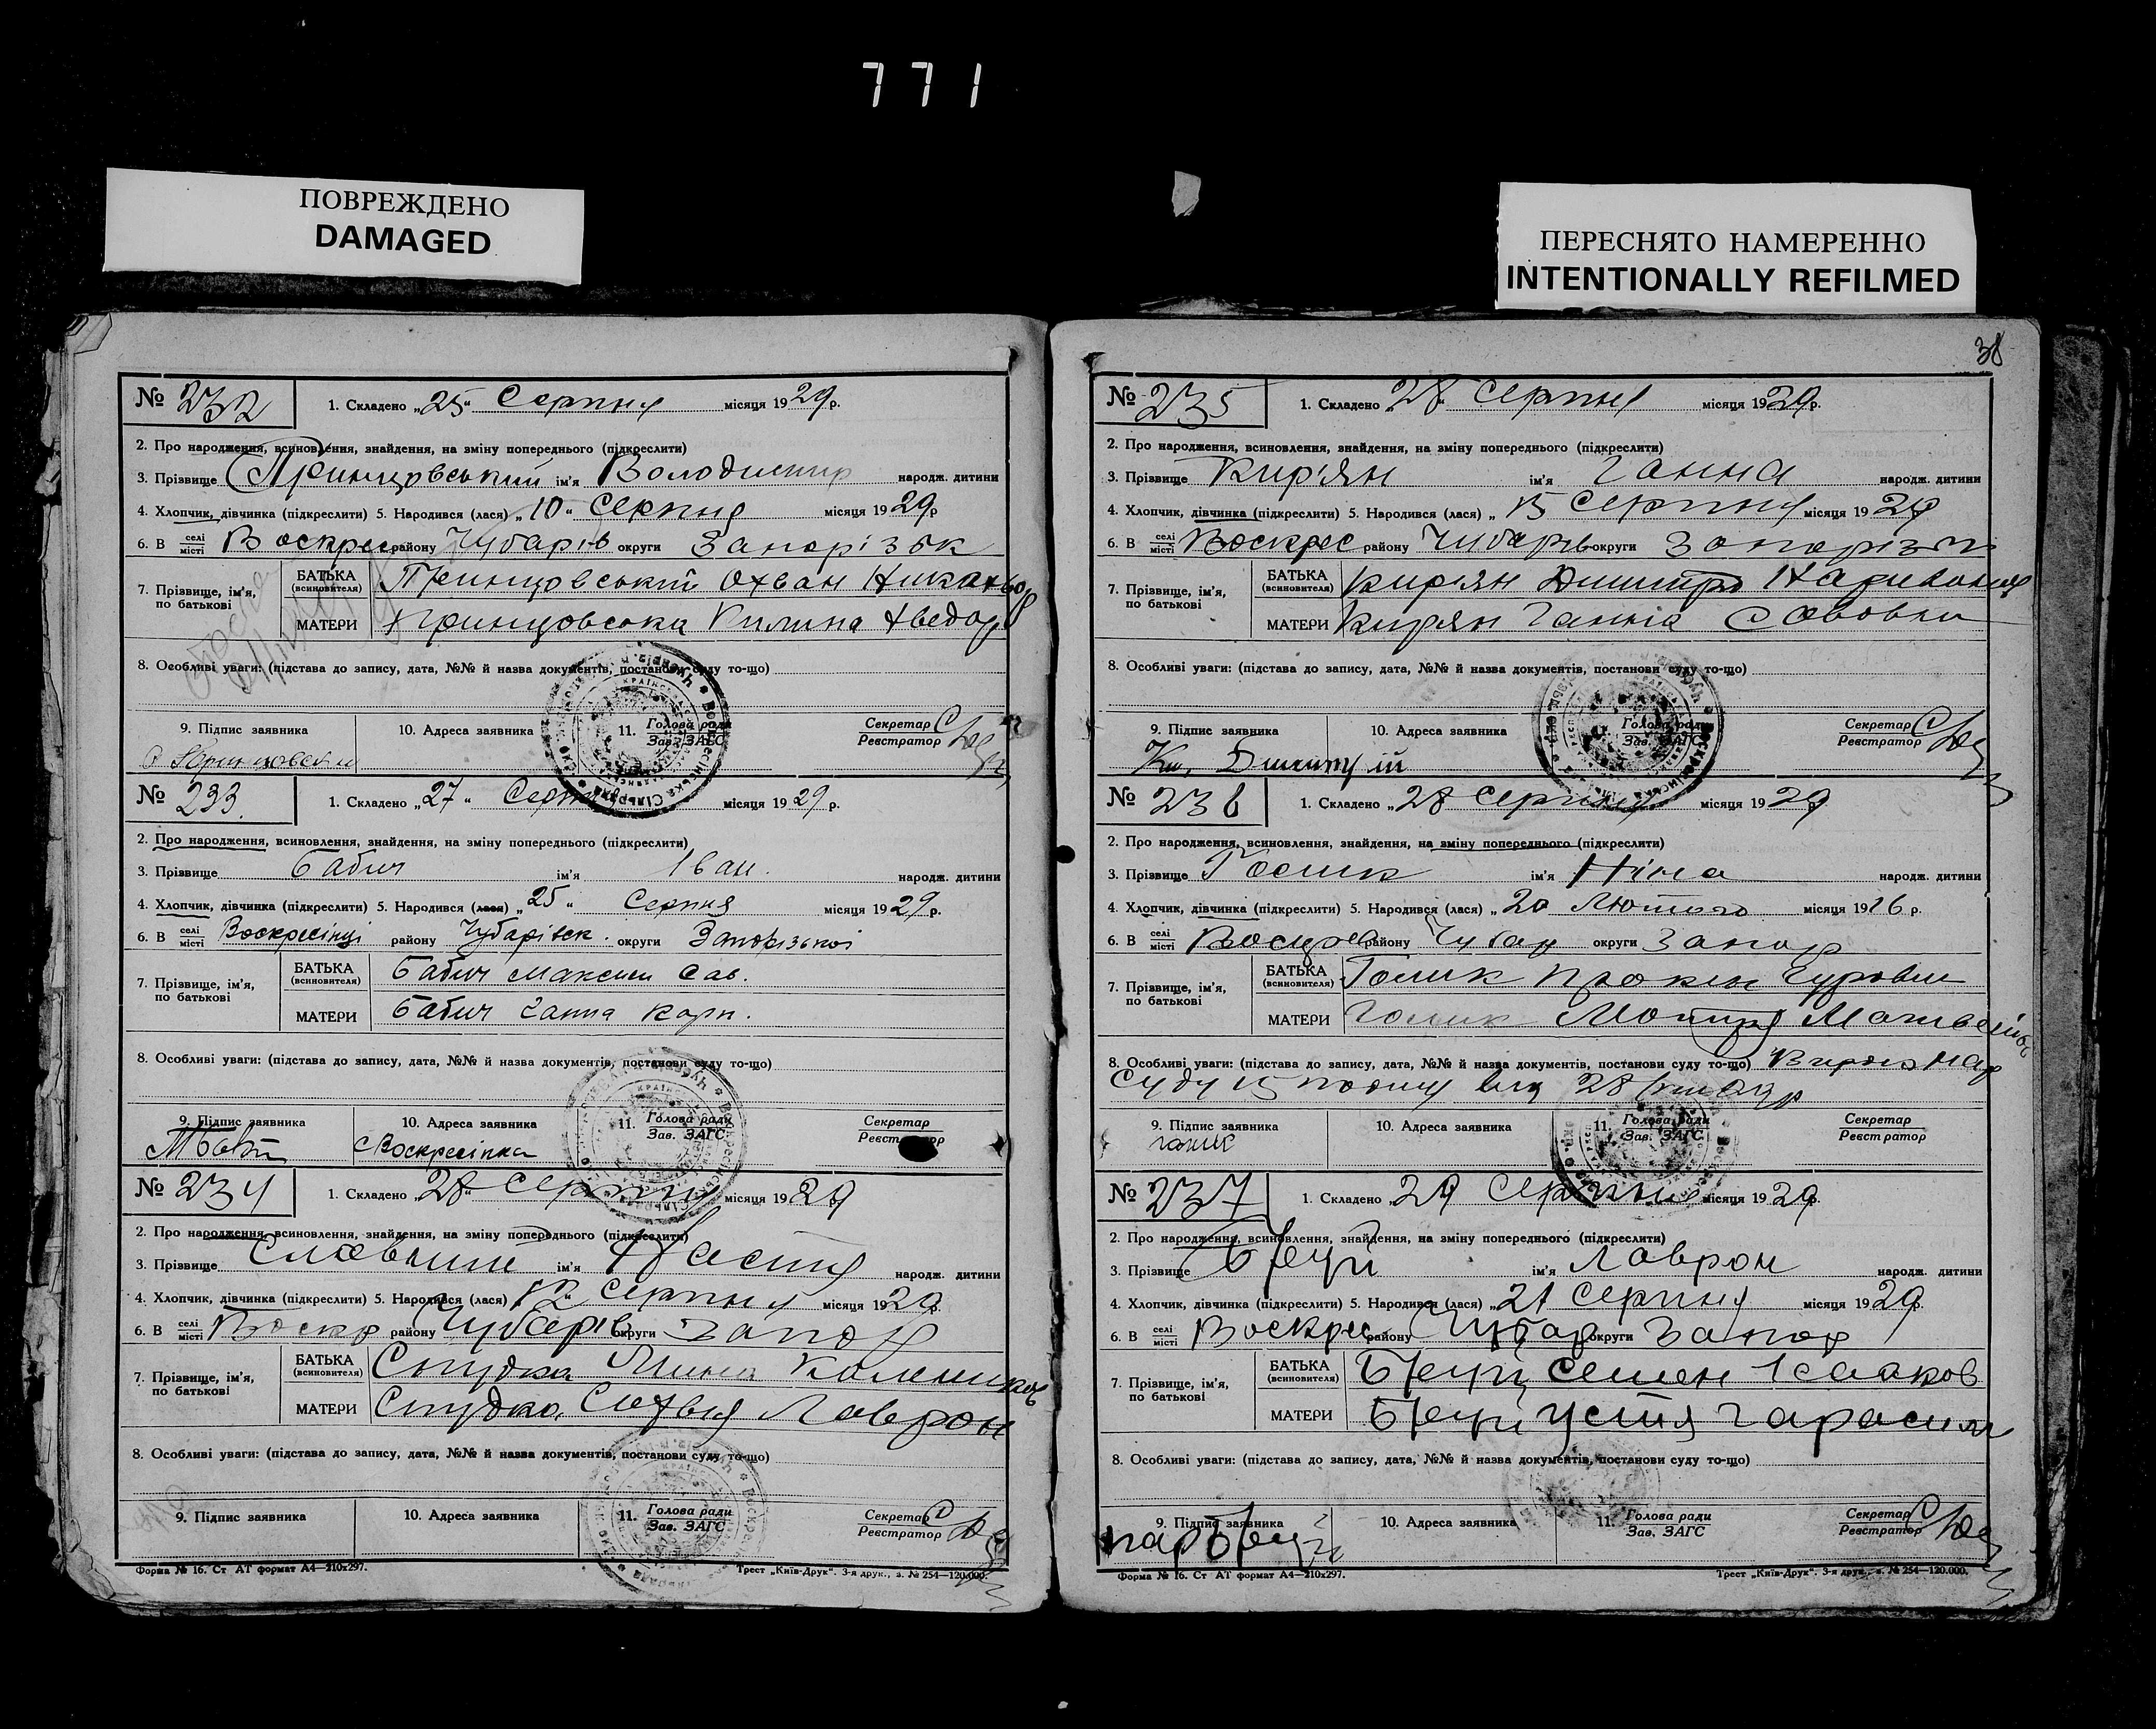 771
ПОВРЕЖДЕНО
DAMAGED
ПЕРЕСНЯТО НАМЕРЕННО
INTENTIONALLY REFILMED
№ 232
1. Складено „25“ Серпня місяця 1929 р.
2. Про народження, всиновлення, знайдення, на зміну попереднього (підкреслити)
3. Прізвище Принцовський ім'я Володимир народж. дитини
4. Хлопчик, дівчинка (підкреслити) 5. Народився (лася) „10“ Серпня місяця 1929 р
6. В селі місті Воскрес району Чубарів округи Запорізьк
7. Прізвище, ім'я, по батькові
БАТЬКА (всиновителя) Принцовський Охван
МАТЕРИ Принцовська Килина Хведор
8. Особливі уваги: (підстава до запису, дата, №№ й назва документів, постанови суду то-що)
9. Підпис заявника 10. Адреса заявника 11. Голова ради Зав. ЗАГС Секретар Реєстратор
№ 233.
1. Складено „27“ Серпня місяця 1929 р.
2. Про народження, всиновлення, знайдення, на зміну попереднього (підкреслити)
3. Прізвище Бабич ім'я Іван. народж. дитини
4. Хлопчик, дівчинка (підкреслити) 5. Народився (лася) „25“ Серпня місяця 1929 р.
6. В селі місті Воскресінці району Чубарівськ. округи Запорізької
7. Прізвище, ім'я, по батькові
БАТЬКА (всиновителя) Бабич Максим Сав.
МАТЕРИ Бабич Ганна Карп.
8. Особливі уваги: (підстава до запису, дата, №№ й назва документів, постанови суду то-що)
9. Підпис заявника 10. Адреса заявника 11. Голова ради Зав. ЗАГС Секретар Реєстратор
Воскресінка
№ 234
1. Складено „28“ Серпня місяця 1929
2. Про народження, всиновлення, знайдення, на зміну попереднього (підкреслити)
3. Прізвище ім'я Настя народж. дитини
4. Хлопчик, дівчинка (підкреслити) 5. Народився (лася) „12“ Серпня місяця 1929 р.
6. В селі місті Воскр району Чубарів округи Запор
7. Прізвище, ім'я, по батькові
БАТЬКА (всиновителя)
МАТЕРИ Лаврон
8. Особливі уваги: (підстава до запису, дата, №№ й назва документів, постанови суду то-що)
9. Підпис заявника 10. Адреса заявника 11. Голова ради Зав. ЗАГС Секретар Реєстратор
Форма № 16. Ст АТ формат А4—210х297. Трест „Київ-Друк“. 3-я друк., з. № 254—120.000.
38
№ 235
1. Складено „28“ Серпня місяця 1929 р.
2. Про народження, всиновлення, знайдення, на зміну попереднього (підкреслити)
3. Прізвище Кир'ян ім'я Ганна народж. дитини
4. Хлопчик, дівчинка (підкреслити) 5. Народився (лася) „15 Серпня місяця 1929
6. В селі місті Воскрес району Чубарів округи Запорізьк
7. Прізвище, ім'я, по батькові
БАТЬКА (всиновителя) Кир'ян Дмитро
МАТЕРИ Кир'ян Ганна Савовна
8. Особливі уваги: (підстава до запису, дата, №№ й назва документів, постанови суду то-що)
9. Підпис заявника 10. Адреса заявника 11. Голова ради Зав. ЗАГС Секретар Реєстратор
№ 236
1. Складено „28 Серпня місяця 1929
2. Про народження, всиновлення, знайдення, на зміну попереднього (підкреслити)
3. Прізвище Голик ім'я Ніна народж. дитини
4. Хлопчик, дівчинка (підкреслити) 5. Народився (лася) „20 Лютого місяця 1916 р.
6. В селі місті району Чубар округи Запор
7. Прізвище, ім'я, по батькові
БАТЬКА (всиновителя) Голик
МАТЕРИ Голик Мотря
8. Особливі уваги: (підстава до запису, дата, №№ й назва документів, постанови суду то-що) Вирок Нар
Суду
9. Підпис заявника 10. Адреса заявника 11. Голова ради Зав. ЗАГС Секретар Реєстратор
Голик
№ 237
1. Складено „29 Серпня місяця 1929 р.
2. Про народження, всиновлення, знайдення, на зміну попереднього (підкреслити)
3. Прізвище ім'я Лаврон народж. дитини
4. Хлопчик, дівчинка (підкреслити) 5. Народився (лася) „21 Серпня місяця 1929 р.
6. В селі місті Воскрес району Чубар округи Запор
7. Прізвище, ім'я, по батькові
БАТЬКА (всиновителя) Семен Ісааков
МАТЕРИ Устя Гарасим
8. Особливі уваги: (підстава до запису, дата, №№ й назва документів, постанови суду то-що)
9. Підпис заявника 10. Адреса заявника 11. Голова ради Зав. ЗАГС Секретар Реєстратор
Форма № 16. Ст АТ формат А4—210х297. Трест „Київ-Друк“. 3-я друк., з. № 254—120.000.